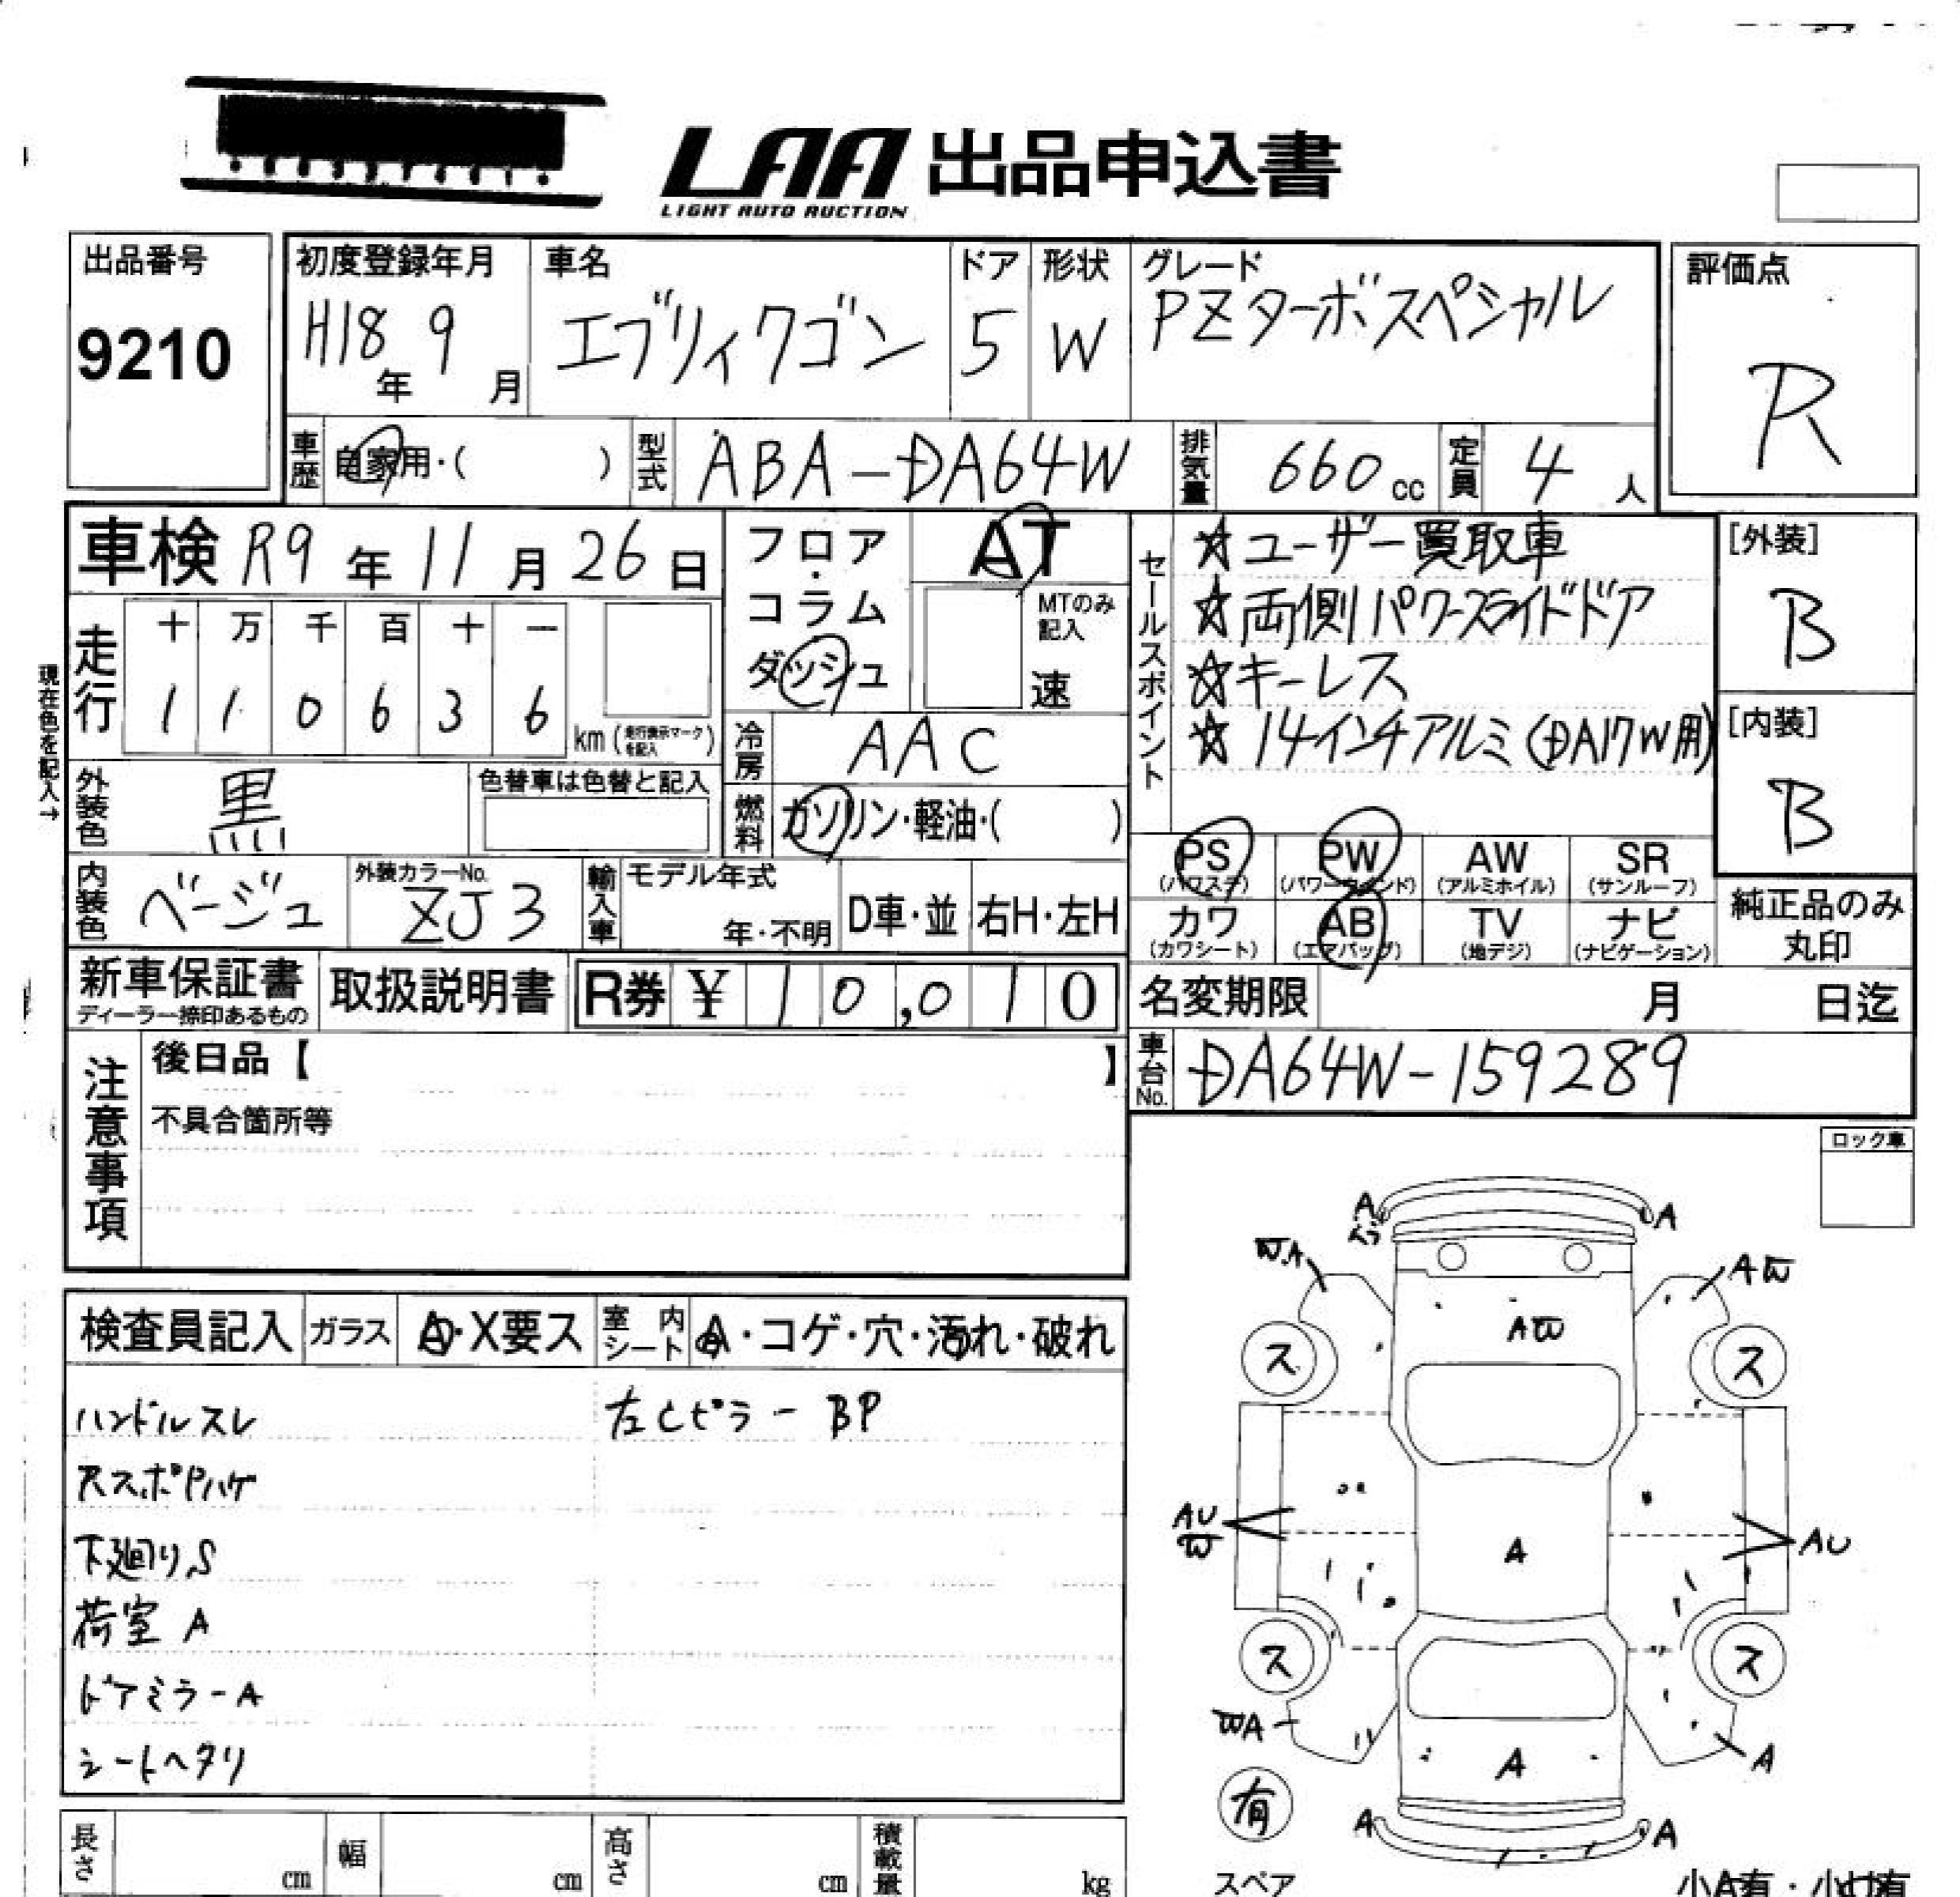 LAA 出品申込書
LIGHT AUTO AUCTION
出品番号
9210
初度登録年月
H18年 9月
車名
エブリィワゴン
ドア
5
形状
W
グレード
PZターボスペシャル
評価点
R
車歴 自家用・( )
型式 ABA-DA64W
排気量 660cc
定員 4人
車検 R9年11月26日
フロア・コラム
ダッシュ
AT
MTのみ記入
速
セールスポイント
☆ユーザー買取車
☆両側パワースライドドア
☆キーレス
☆14インチアルミ(DA17W用)
[外装]
B
[内装]
B
現在色を記入→
走行
十 万 千 百 十 一
1 1 0 6 3 6
km (走行表示マークを記入)
冷房 AAC
外装色 黒
色替車は色替と記入
燃料 ガソリン・軽油・( )
内装色 ベージュ
外装カラーNo.
ZJ3
輸入車
モデル年式
年・不明
D車・並
右H・左H
PS (パワステ)
PW (パワーウィンド)
AW (アルミホイル)
SR (サンルーフ)
カワ (カワシート)
AB (エアバッグ)
TV (地デジ)
ナビ (ナビゲーション)
純正品のみ
丸印
新車保証書
ディーラー捺印あるもの
取扱説明書
R券 ¥ 10,010
名変期限 月 日迄
注意事項
後日品【 】
不具合箇所等
車台No. DA64W-159289
ロック車
検査員記入
ガラス A・X要ス
室内シート A・コゲ・穴・汚れ・破れ
ハンドルスレ
左CピラーBP
RスポPハゲ
下廻りS
荷室 A
ドアミラーA
シートヘタリ
A A
WA AW
AW
ス ス
AU
W
A
AU
ス ス
WA
A
A
有
スペア
A A
長さ cm
幅 cm
高さ cm
積載量 kg
小A有・小U有